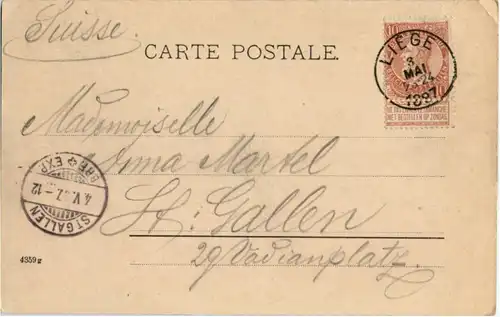 Suisse.
CARTE POSTALE.
10
LIÈGE
3
MAI
1897
NE PAS LIVRER LE DIMANCHE
NIET BESTELLEN OP ZONDAG
Mademoiselle
Anna Martel
St. Gallen
29 Vadianplatz.
BRF EXP.
4.V.97.-12
ST GALLEN
4359g